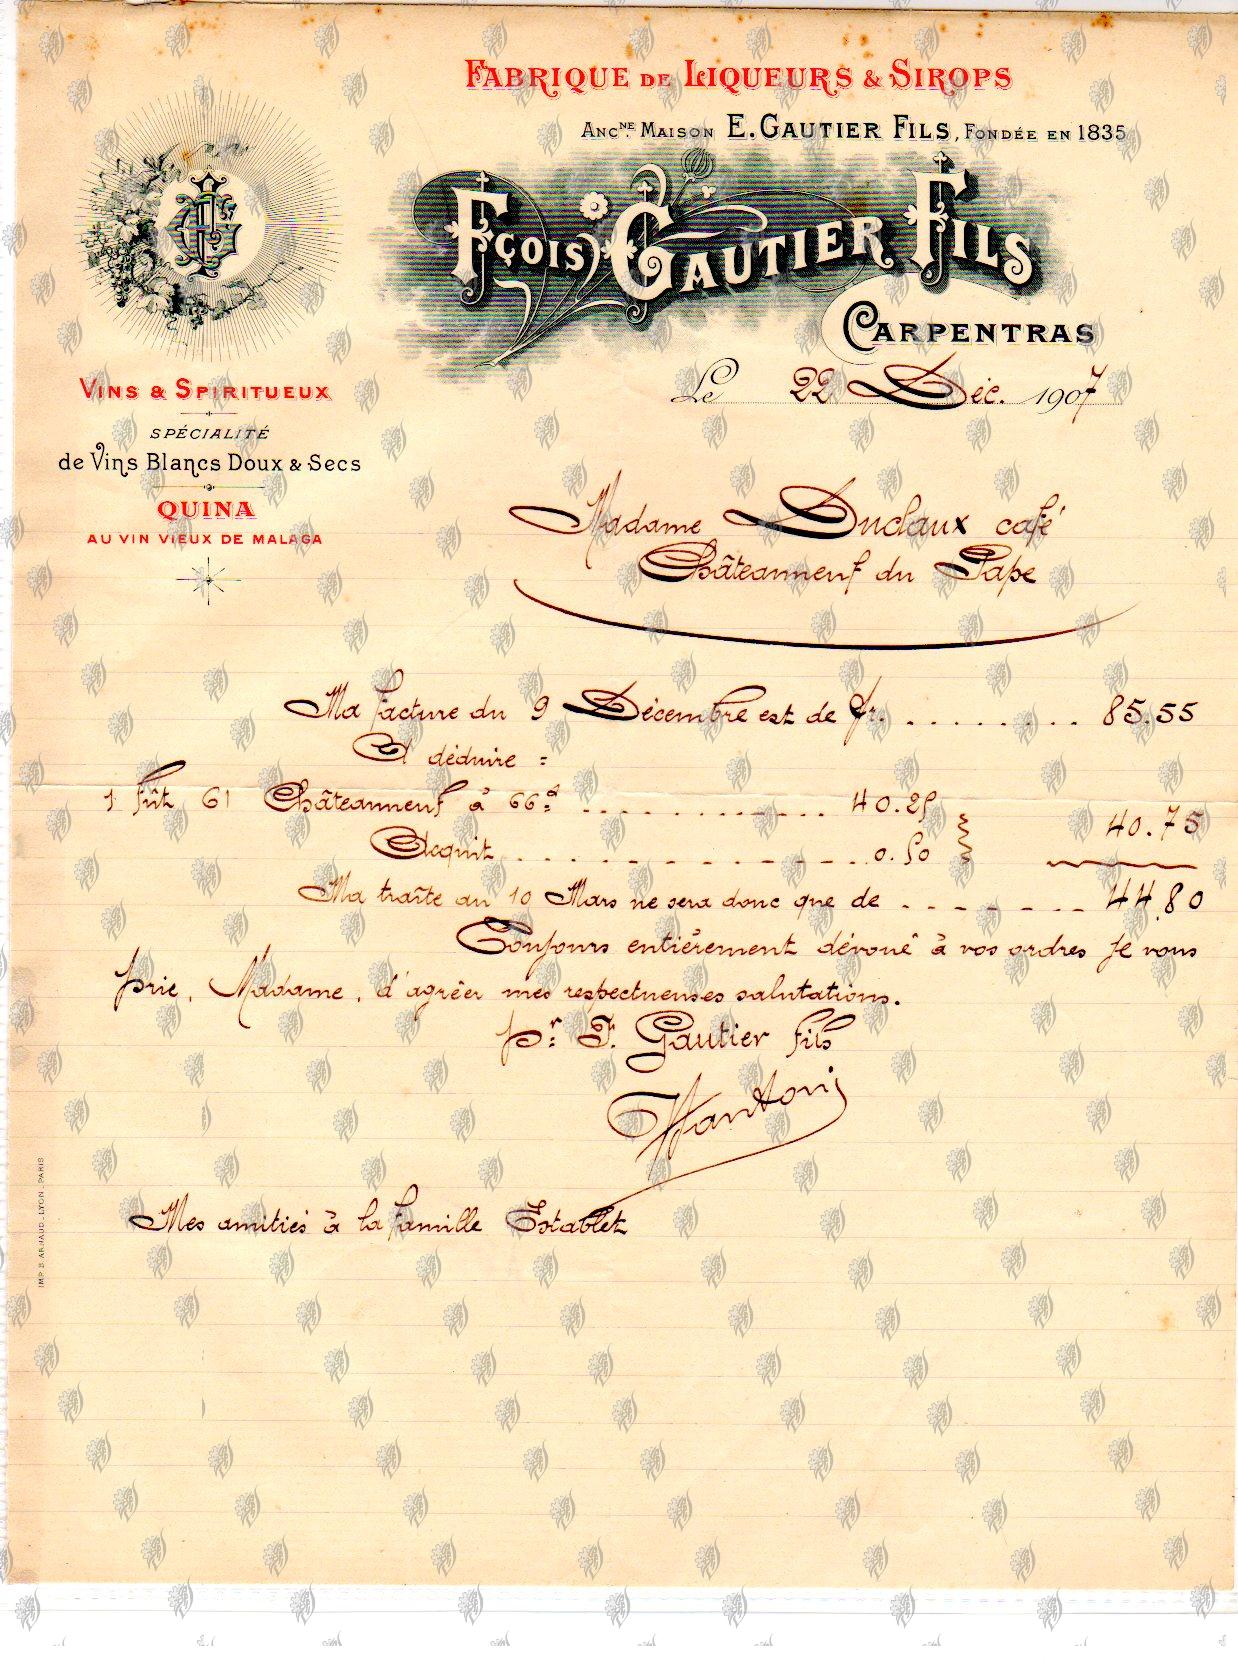 Fabrique de Liqueurs & Sirops
Anc.ne Maison E. Gautier Fils, Fondée en 1835
Fçois Gautier Fils
Carpentras
Le 22 Déc. 1907
Vins & Spiritueux
Spécialité
de Vins Blancs Doux & Secs
Quina
au vin vieux de Malaga
Madame Duclaux café
Châteauneuf du Pape
Ma facture du 9 Décembre est de fr. . . . . . . . . . 85.55
A déduire :
1 fût 61 Châteauneuf à 66 . . . . . . . . . . . . 40.25
40.75
Acquit . . . . . . . . . . . . . 0.50
Ma traîte au 10 Mars ne sera donc que de . . . . . . . 44.80
Toujours entièrement dévoué à vos ordres je vous
prie, Madame, d'agréer mes respectueuses salutations.
pr. F. Gautier fils
Mes amitiés à la famille Establet
IMP. B. ARNAUD. LYON_PARIS